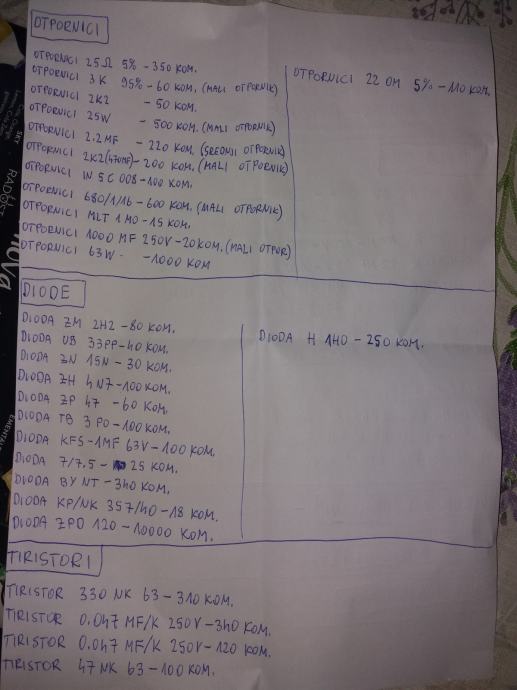 OTPORNICI
OTPORNICI 25Ω 5% - 350 KOM.
OTPORNICI 3K 95% - 60 KOM. (MALI OTPORNIK)
OTPORNICI 2K2 - 50 KOM.
OTPORNICI 25W - 500 KOM. (MALI OTPORNIK)
OTPORNICI 2.2MF - 220 KOM. (SREDNJI OTPORNIK)
OTPORNICI 2K2 (470MF) - 200 KOM. (MALI OTPORNIK)
OTPORNICI IN 5C 008 - 100 KOM.
OTPORNICI 680/1/16 - 600 KOM. (MALI OTPORNIK)
OTPORNICI MLT 1M0 - 15 KOM.
OTPORNICI 1000 MF 250V - 20 KOM. (MALI OTPOR)
OTPORNICI 63W - 1000 KOM
OTPORNICI 22 OM 5% - 110 KOM.
DIODE
DIODA ZM 2H2 - 80 KOM.
DIODA UB 33PP - 40 KOM.
DIODA ZN 15N - 30 KOM.
DIODA ZH 4N7 - 100 KOM.
DIODA ZP 47 - 60 KOM.
DIODA TB 3P0 - 100 KOM.
DIODA KFS - 1MF 63V - 100 KOM.
DIODA 7/7.5 - 25 KOM.
DIODA BY NT - 340 KOM.
DIODA KP/NK 357/40 - 18 KOM.
DIODA ZPD 120 - 10000 KOM.
DIODA H 1H0 - 250 KOM.
TIRISTORI
TIRISTOR 330 NK 63 - 310 KOM.
TIRISTOR 0.047 MF/K 250V - 340 KOM.
TIRISTOR 0.047 MF/K 250V - 120 KOM.
TIRISTOR 47 NK 63 - 100 KOM.
SKY